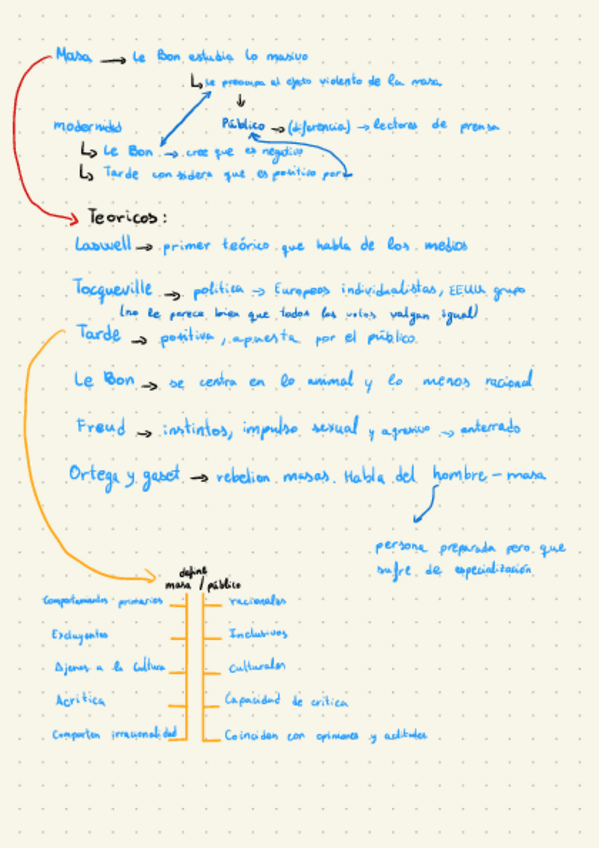 Masa → Le Bon estudia lo masivo
↳ Le preocupa el efecto violento de la masa
↓
modernidad
Público → (diferencia) → lectores de prensa
↳ Le Bon → cree que es negativo
↳ Tarde considera que es positivo por
Teoricos:
Laswell → primer teórico que habla de los medios
Tocqueville → politica → Europeos individualistas, EEUU grupo
(no le parece bien que todos los votos valgan igual)
Tarde → positiva, apuesta por el público.
Le Bon → se centra en lo animal y lo menos racional
Freud → instintos, impulso sexual y agresivo → enterrado
Ortega y gaset → rebelion masas. Habla del hombre - masa
persona preparada pero que
sufre de especialización
define
masa / público
Comportamientos primarios
racionales
Excluyentes
Inclusivos
Ajenos a la cultura
culturales
Acritica
Capacidad de critica
Comparten irracionalidad
Coinciden con opiniones y actitudes